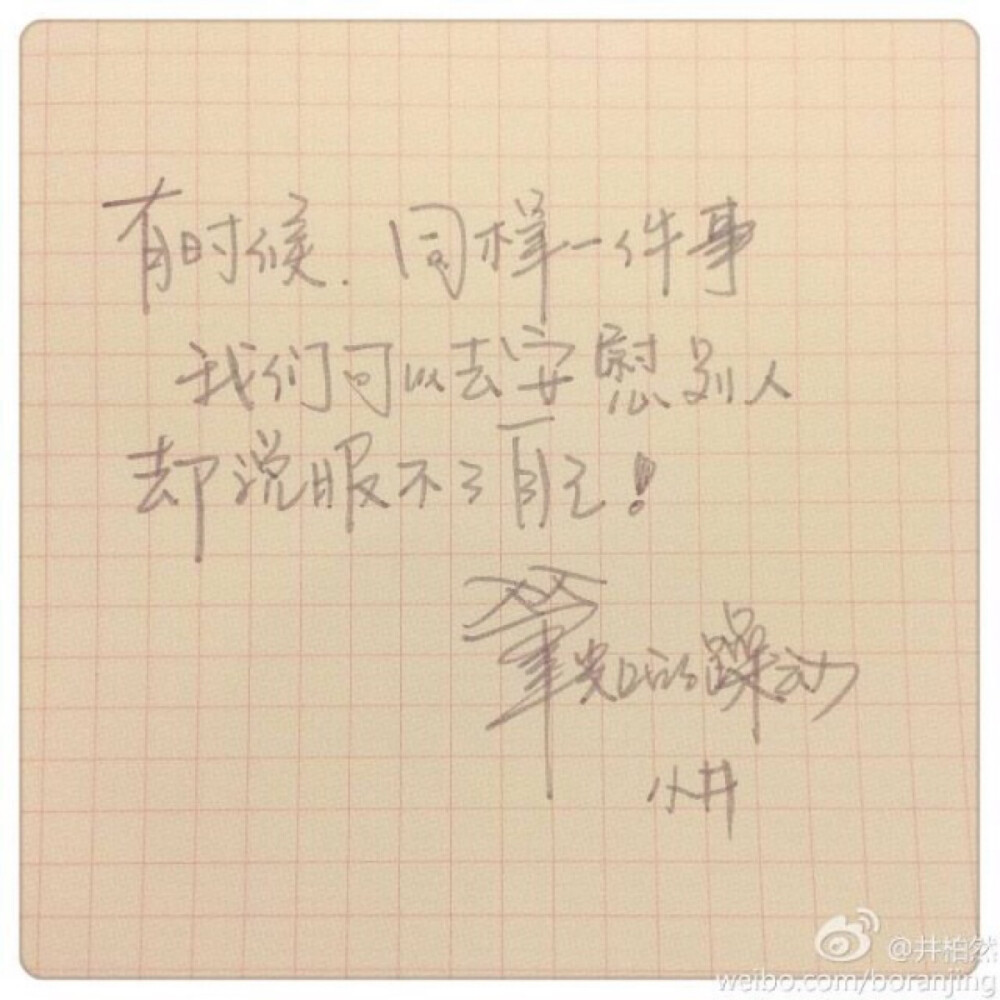 有时候.同样一件事
我们可以去安慰别人
却说服不了自己!
笔袋的躁动
小井
@井柏然
weibo.com/boranjing